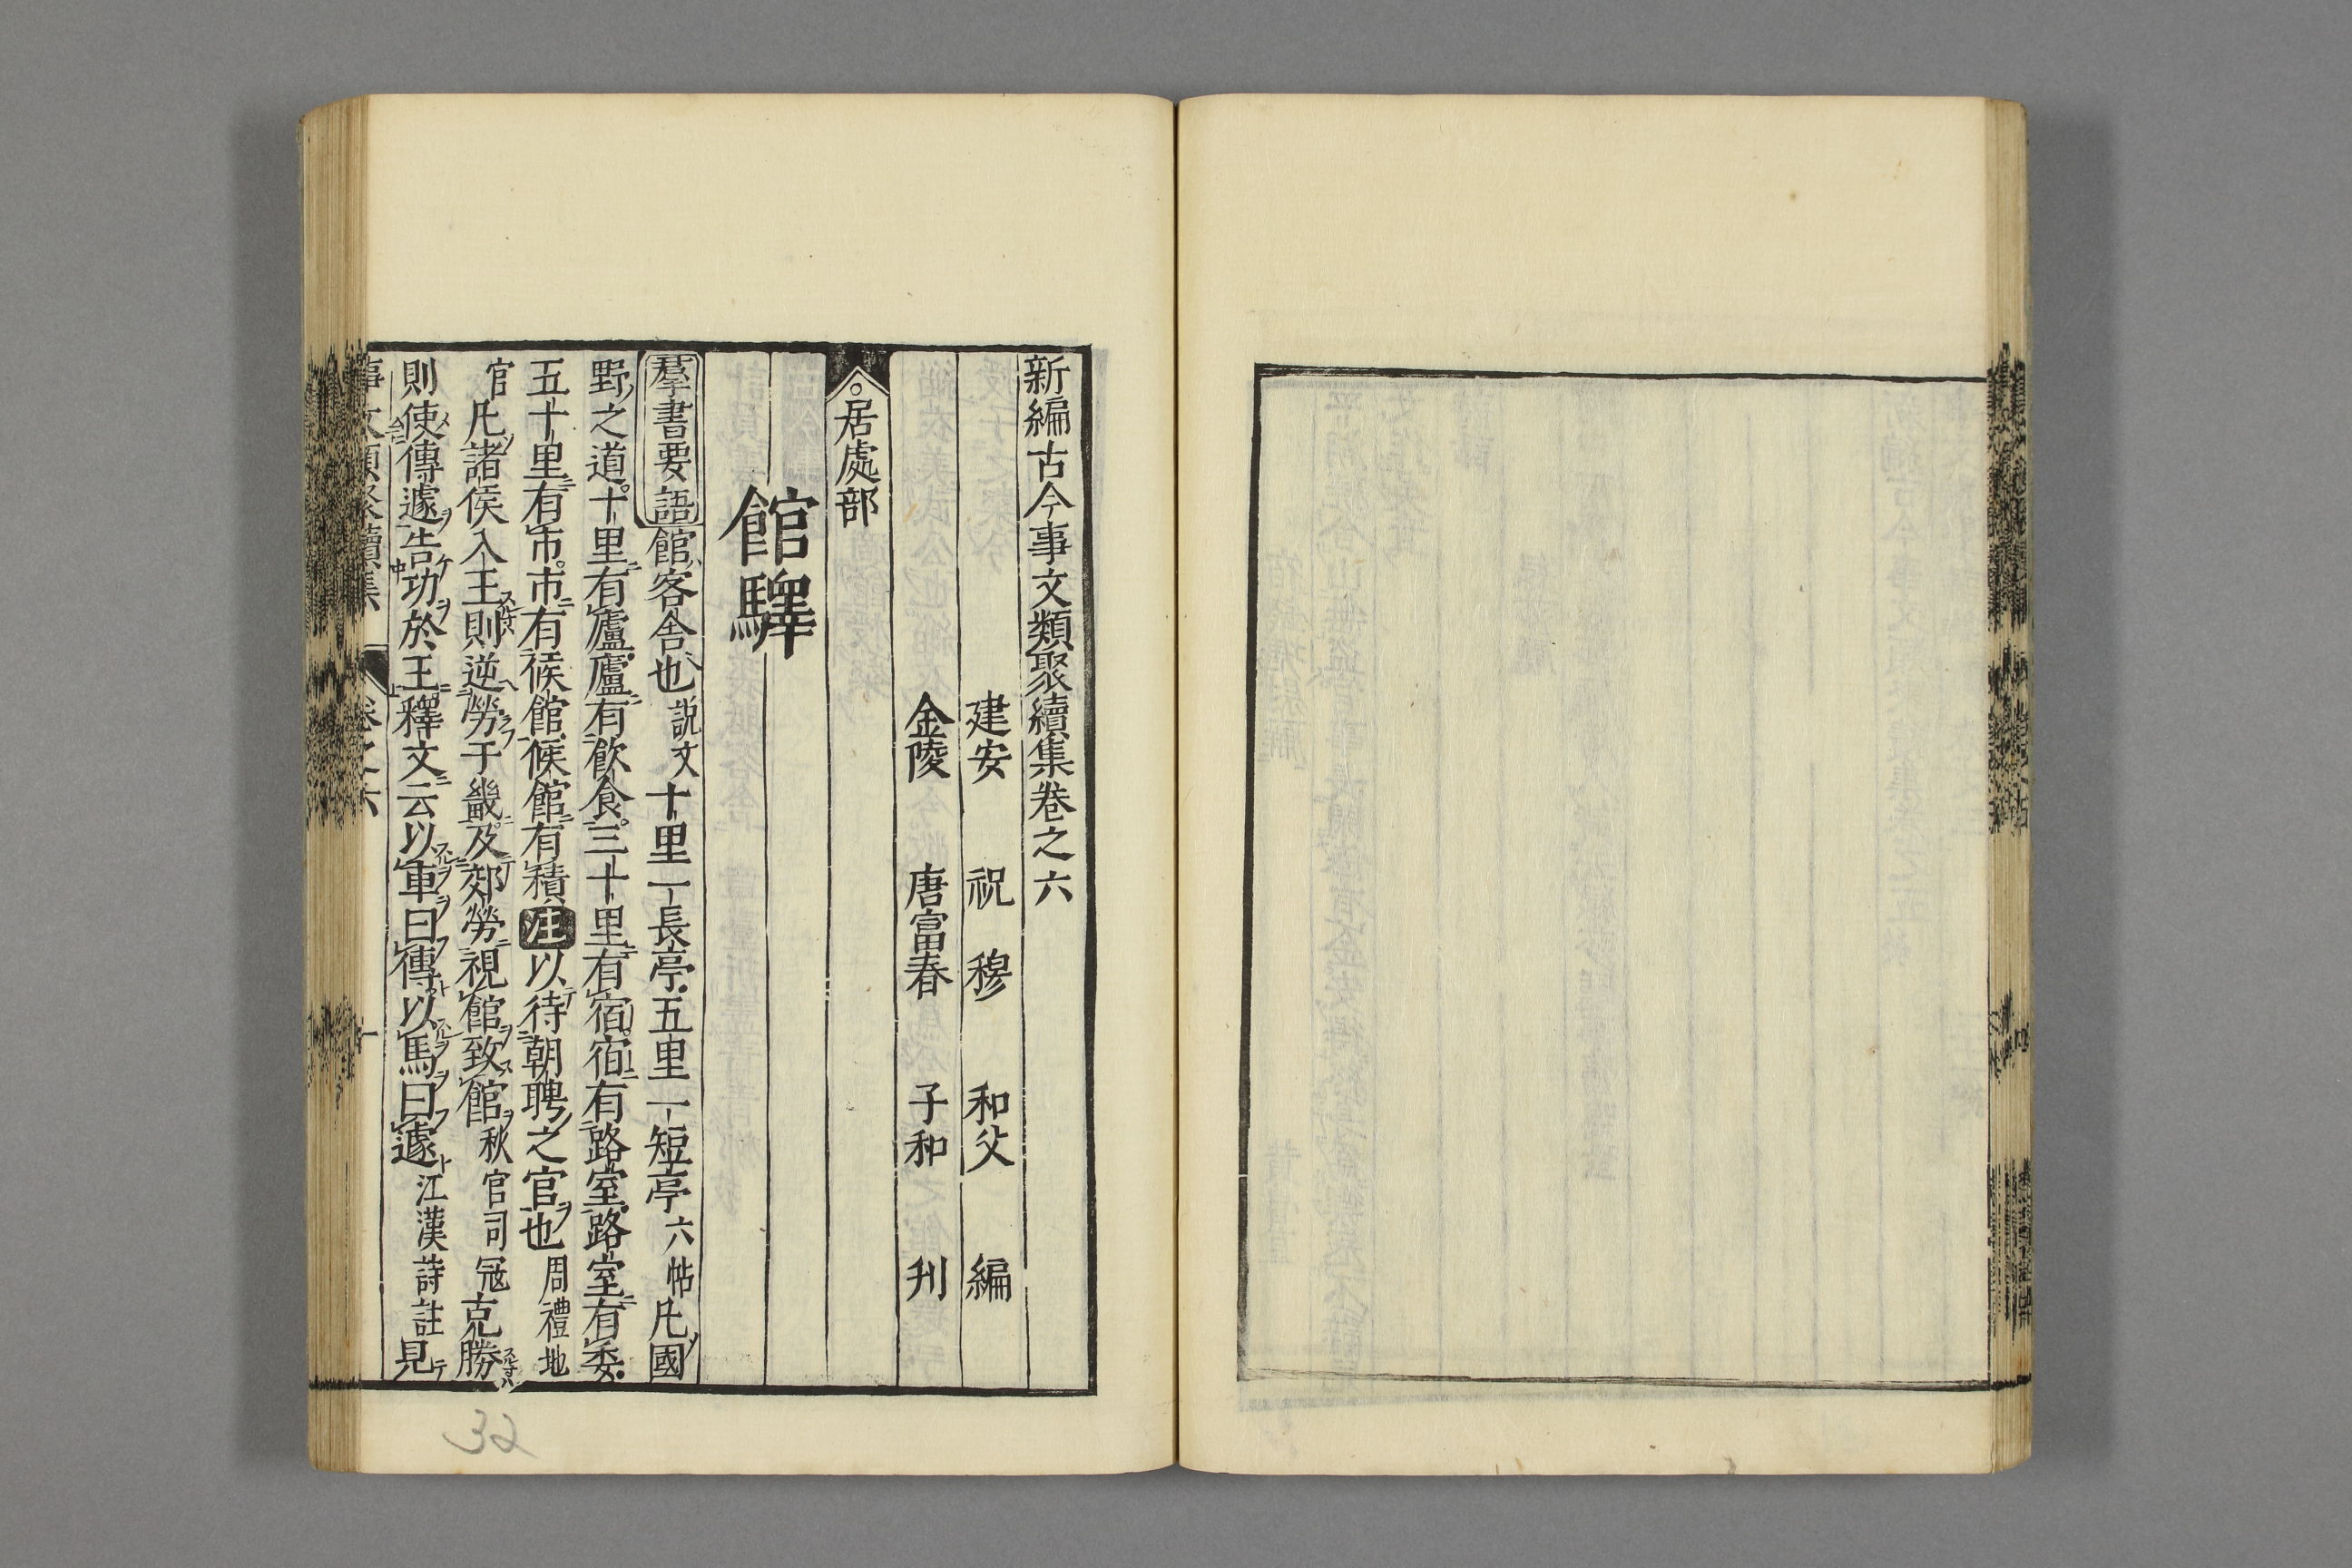 新編古今事文類聚續集卷之六
建安 祝 穆 和父 編
金陵 唐富春 子和 刋
居處部
館驛
羣書要語館客舎也説文十里一長亭五里一短亭六帖凡國
野之道十里有廬廬有飲食三十里有宿宿有路室路室有委
五十里有市市有候館候館有積注以待朝聘之官也周禮地
官凡諸侯入王則逆勞于畿及郊勞視館致館秋官司冦克勝
則使傳遽告功於王釋文云以車曰傳以馬曰遽江漢詩註見
事文類聚續集 卷之六 一
32